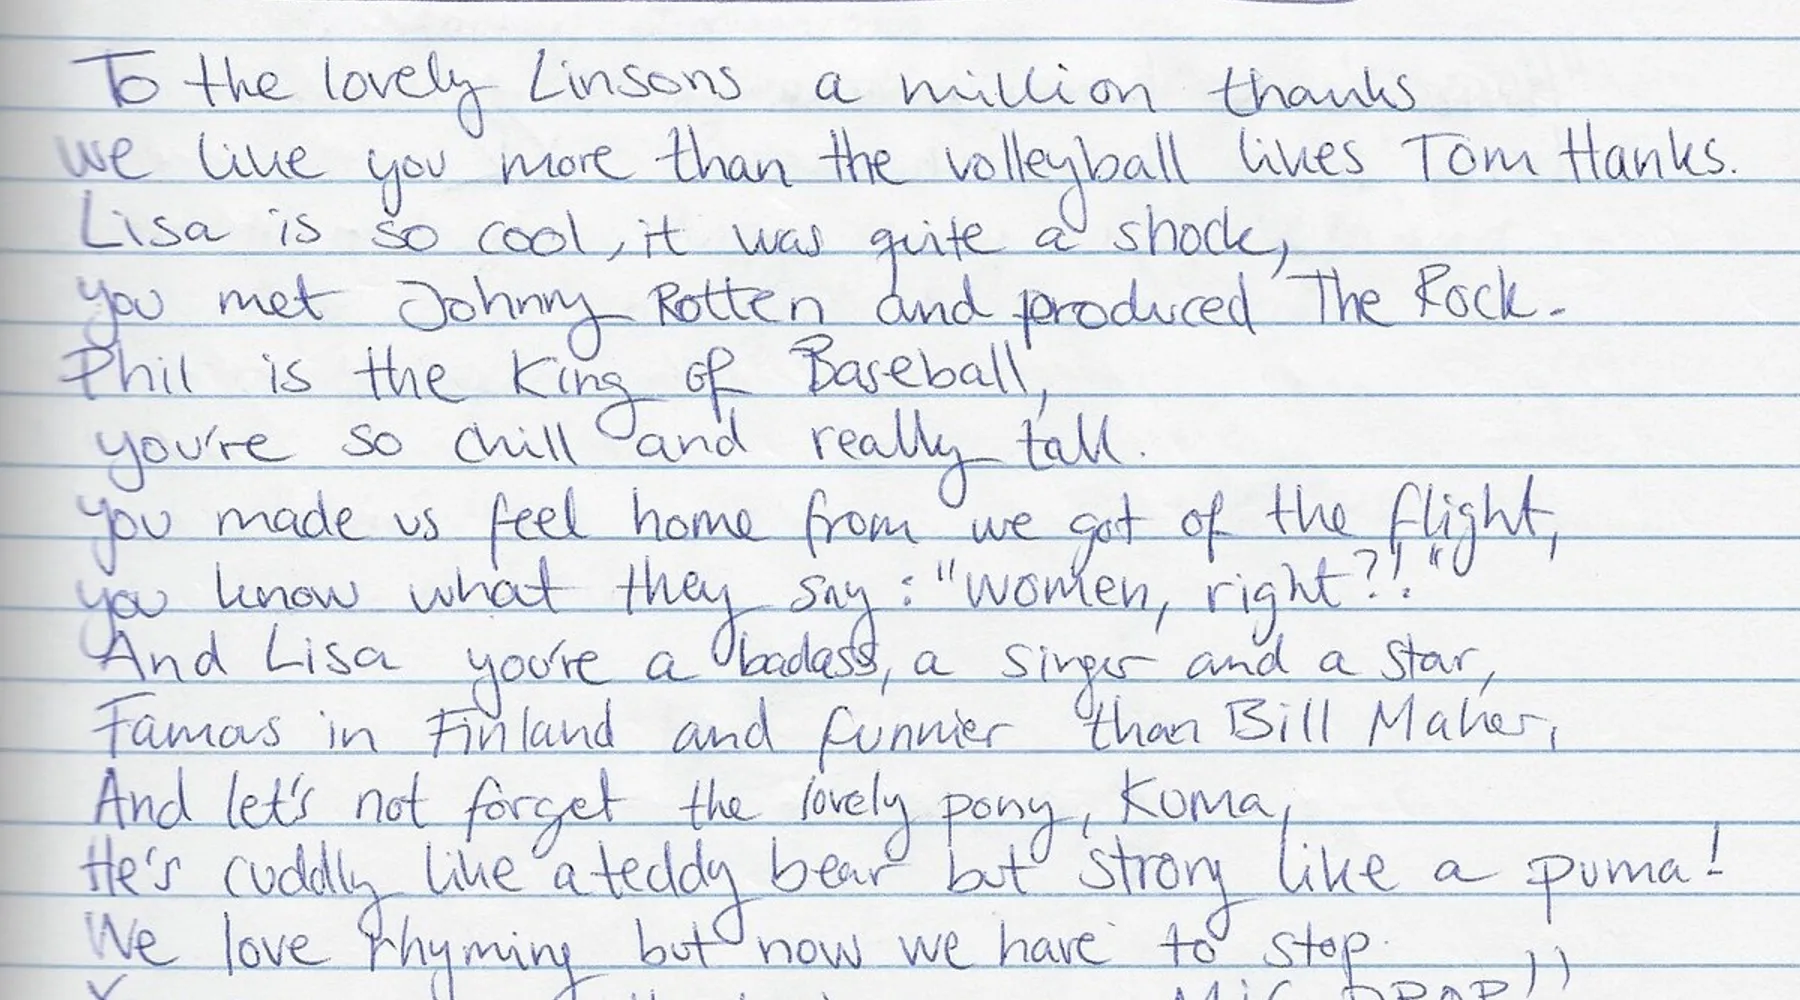 To the lovely Linsons a million thanks
we like you more than the volleyball likes Tom Hanks.
Lisa is so cool, it was quite a shock,
you met Johnny Rotten and produced The Rock.
Phil is the King of Baseball,
you're so chill and really tall.
you made us feel home from we got of the flight,
you know what they say: "women, right?!"
And Lisa you're a badass, a singer and a star,
Famous in Finland and funnier than Bill Maher,
And let's not forget the lovely pony, Kuma,
He's cuddly like a teddy bear but strong like a puma!
We love rhyming but now we have to stop.
MIC DROP